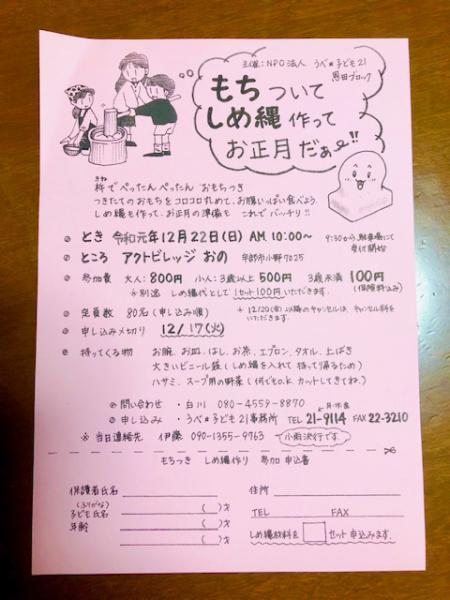 主催：NPO法人 うべ★子ども21
恩田ブロック
もちついて
しめ縄作って
お正月だぁー!!
杵でぺったんぺったん おもちつき
きね
つきたてのおもちをコロコロ丸めて、お腹いっぱい食べよう。
しめ縄も作って、お正月の準備も これでバッチリ!!
とき 令和元年12月22日(日) AM 10:00〜
9:30から、駐車場にて
受付開始
ところ アクトビレッジ おの 宇部市小野7025
参加費 大人：800円 小人：3歳以上500円 3歳未満 100円
(保険料込み)
※別途 しめ縄代として1セット100円いただきます。
定員数 80名(申し込み順)
※12/20(金)以降のキャンセルは、キャンセル料を
いただきます。
申し込み〆切り 12/17(火)
持ってくる物 お腕、お皿、はし、お茶、エプロン、タオル、上ばき
大きいビニール袋(しめ縄を入れて持って帰るため)
ハサミ、スープ用の野菜(何でもo.k. カットしてきてね。)
問い合わせ・白川 080-4559-8870
月・水・金
申し込み・うべ★子ども21事務所 TEL 21-9114 FAX 22-3210
※当日連絡先 伊藤 090-1355-9763 小雨決行です。
もちつき しめ縄作り 参加 申込書
保護者氏名
住所
(ふりがな)
子ども氏名 ( )才
TEL FAX
年齢 ( )才
( )才
しめ縄材料を セット申込みます。